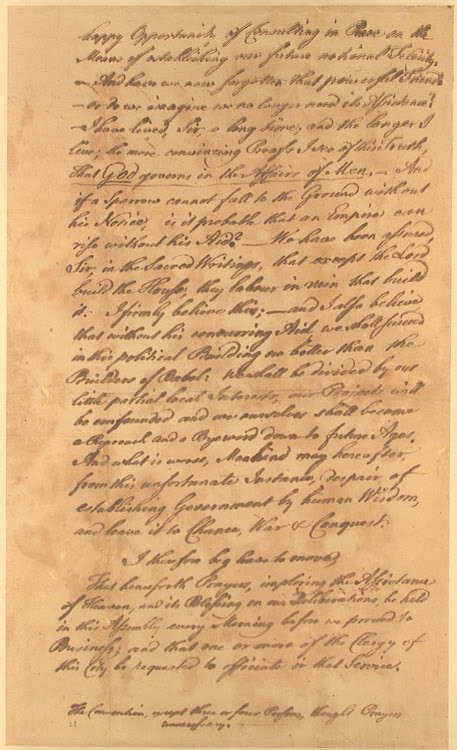 happy Opportunity of Consulting in Peace on the
Means of establishing our future national Felicity.
— And have we now forgotten that powerful Friend?
— or do we imagine we no longer need its Assistance?
— I have lived, Sir, a long time; and the longer I
live, the more convincing Proofs I see of this Truth,
That GOD governs in the Affairs of Men. — And
if a Sparrow cannot fall to the Ground without
his Notice, is it probable that an Empire can
rise without his Aid? — We have been assured,
Sir, in the Sacred Writings, that except the Lord
build the House, they labour in vain that build
it. I firmly believe this; — and I also believe
that without his concurring Aid, we shall succeed
in this political Building no better than the
Builders of Babel: we shall be divided by our
little partial local Interests, our Projects will
be confounded and we ourselves shall become
a Reproach and a Byeword down to future Ages.
And what is worse, Mankind may hereafter,
from this unfortunate Instance, despair of
establishing Government by human Wisdom,
and leave it to Chance, War & Conquest.
I therefore beg leave to move,
That henceforth Prayers, imploring the Assistance
of Heaven, and its Blessing on our Deliberations, be held
in this Assembly every Morning before we proceed to
Business; and that one or more of the Clergy of
this City be requested to officiate in that Service.
The Convention, except three or four Persons, thought Prayers
unnecessary. —